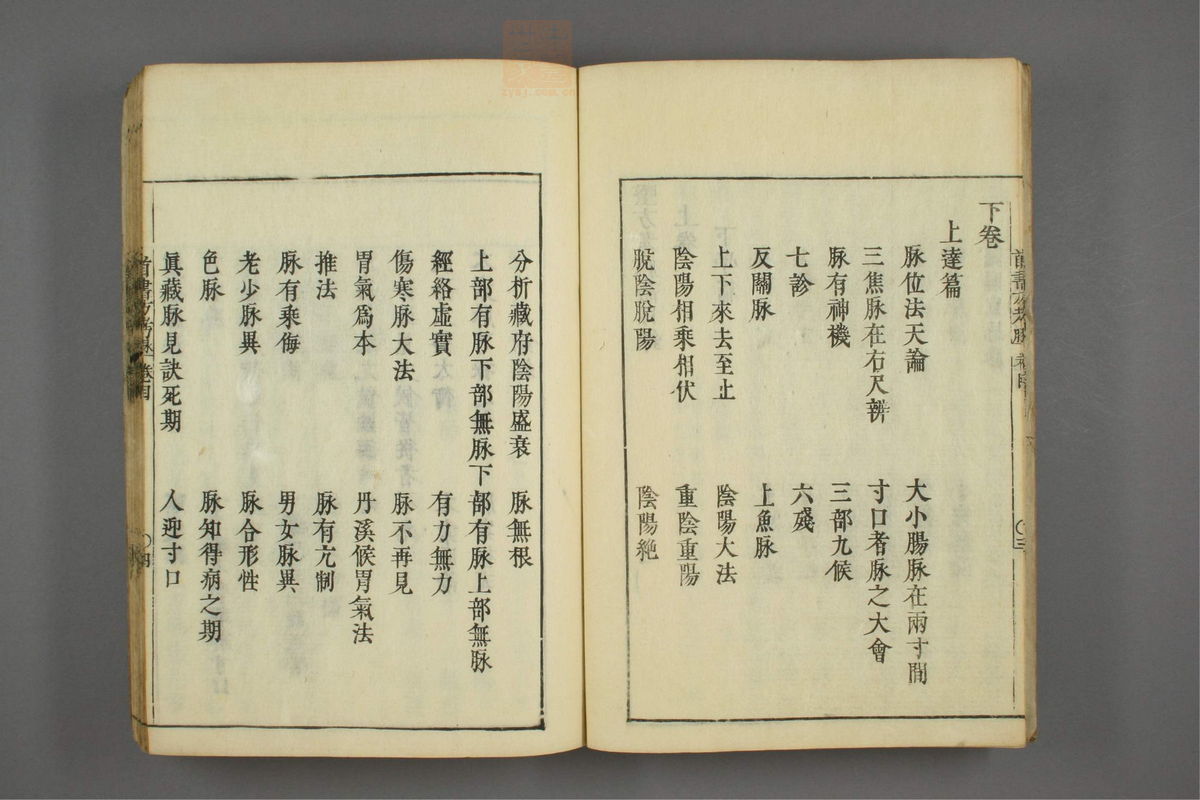 下卷
上達篇
脉位法天論　大小腸脉在兩寸間
三焦脉在右尺辨　寸口者脉之大會
脉有神機　三部九候
七診　六殘
反關脉　上魚脉
上下來去至止　陰陽大法
陰陽相乘相伏　重陰重陽
脫陰脫陽　陰陽絶
分析藏府陰陽盛衰　脉無根
上部有脉下部無脉下部有脉上部無脉
經絡虛實　有力無力
傷寒脉大法　脉不再見
胃氣爲本　丹溪候胃氣法
推法　脉有亢制
脉有乘侮　男女脉異
老少脉異　脉合形性
色脉　脉知得病之期
眞藏脉見訣死期　人迎寸口
zysj.com.cn